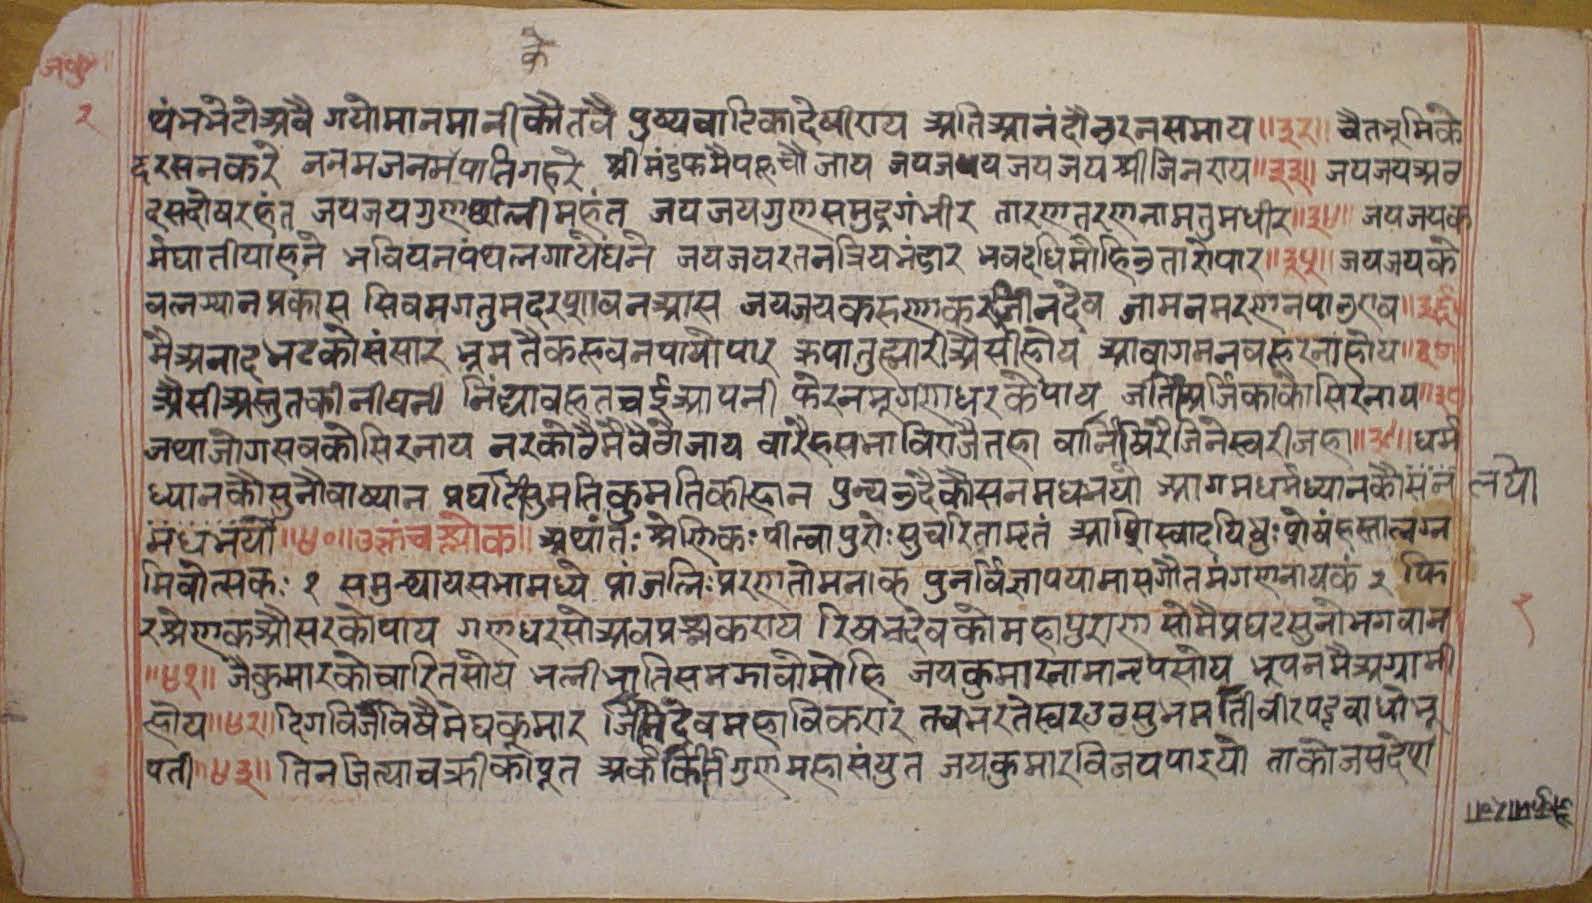 के
२
थंभभेटोअवै गयोमानमानीकौतवै पुष्पवाटिकादेषीराय अतिआनंदौउरनसमाय ॥३२॥ चैतभूमिके
दरसनकरे जनमजनमपातिगहरे श्रीमंडफमैपहुचौजाय जयजयजयजयजयश्रीजिनराय ॥३३॥ जयजयअव
दसदोषरहंत जयजयगुणछालीमहंत जयजयगुणसमुद्रगंभीर तारणतरणनामतुमधीर ॥३४॥ जयजयक
र्मघातीयांहने भवियनपंथलगायेघने जयजयरतनत्रियभंडार भवदधिमोहिउतारोपार ॥३५॥ जयजयके
वलग्यानप्रकास सिवमगतुमदर जयजयकरुणाकर जिनदेव जामनमरण ॥३६॥
मैअनाद भटकौसंसार भ्रमतैकहुवनपायोपार क्रपातुह्मारीअैसीहोय आवागमनवहुरनाहोय ॥३७॥
अैसीअस्तुतकीनीघनी निंद्यावहुतचईआपनी फेरनमूगणधरकेपाय अर्जिकाकौसिरनाय ॥३८॥
जथाजोगसवकौसिरनाय नरकोठैमैवैठौजाय वारैहसभाविराजैतहा वानिषिरैजिनेस्वरीजहा ॥३९॥ धर्म
ध्यानकौसुनौवाष्यान प्रघटीसुमतिकुमतिकीहान पुन्यउदैकौसनमधभयौ आगमधर्मध्यानकौसंन लयो
मंधभयौ ॥४०॥ उक्तंचश्लोक ॥ अथांतः श्रेणिकः पीत्वापुरोः सुचरितामृतं हस्ताल्लग्न
मिवोत्सकः १ समुत्थायसभामध्ये प्रांजलिःप्रणतोमनाक पुनर्विज्ञापयामासगौतमंगणनायकं २ फि
रश्रेणकऔसरकोपाय गणधरसोअवप्रश्नकराय रिषभदेवकोमहापुराण सोमैप्रघटसुनोभगवान
॥४१॥ जैकुमारकोचारितसोय भलीभातिसमझावोमोहि जयकुमारनामानृपसोय भूपनमैअग्रामी
होय ॥४२॥ दिगविजैविषैमेघकुमार देवमहाविकरार तवभरतेस्वर वीरपट्टवाधोभू
पती ॥४३॥ तिनजित्याचक्रीकोपूत अर्ककीर्तिगुणमहासंयुत जयकुमारविजयपारयो ताकोजस